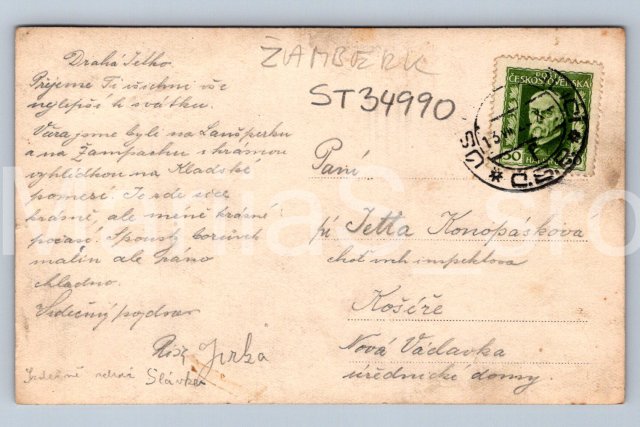 ŽAMBERK
ST34990
Drahá Jetko
Přejeme Ti všichni vše
nejlepší k svátku.
Včera jsme byli na Lanšperku
a na Žampachu s krásnou
vyhlídkou na Kladské
pomezí. Je zde
krásně, ale méně krásné
počasí. Spousty borůvek
malin ale ráno
chladno.
Srdečný pozdrav
Jirka
Srdečně zdraví Slávka
POŠTA
ČESKOSLOVENSKÁ
50
Paní
pí Jetta Konopásková
choť inspektora
Košíře
Nová Václavka
úřednické domy.